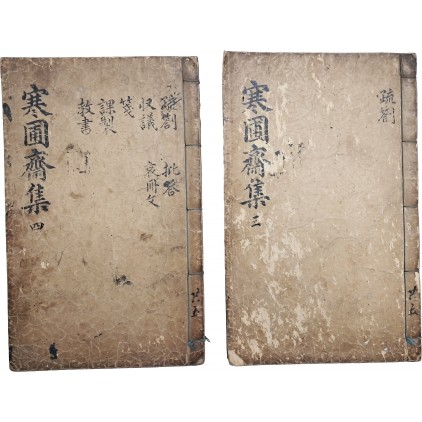 寒圃齋集 四
疏劄 批答
收議 哀冊文
箋
課製
教書
共五
寒圃齋集 三
疏劄
共五